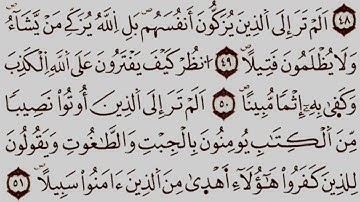 ٤٨ اَلَمْ تَرَ اِلَى الَّذِينَ يُزَكُّونَ اَنْفُسَهُمْ بَلِ اللّٰهُ يُزَكِّي مَنْ يَّشَآءُ
وَلَا يُظْلَمُونَ فَتِيلًا ٤٩ اُنْظُرْ كَيْفَ يَفْتَرُونَ عَلَى اللّٰهِ الْكَذِبَ
وَكَفٰى بِهٖٓ اِثْمًا مُّبِينًا ٥٠ اَلَمْ تَرَ اِلَى الَّذِينَ اُوتُوْا نَصِيبًا
مِّنَ الْكِتٰبِ يُؤْمِنُونَ بِالْجِبْتِ وَالطّٰغُوتِ وَيَقُولُونَ
لِلَّذِينَ كَفَرُوْا هٰٓؤُلَآءِ اَهْدٰى مِنَ الَّذِينَ ءَامَنُوْا سَبِيلًا ٥١